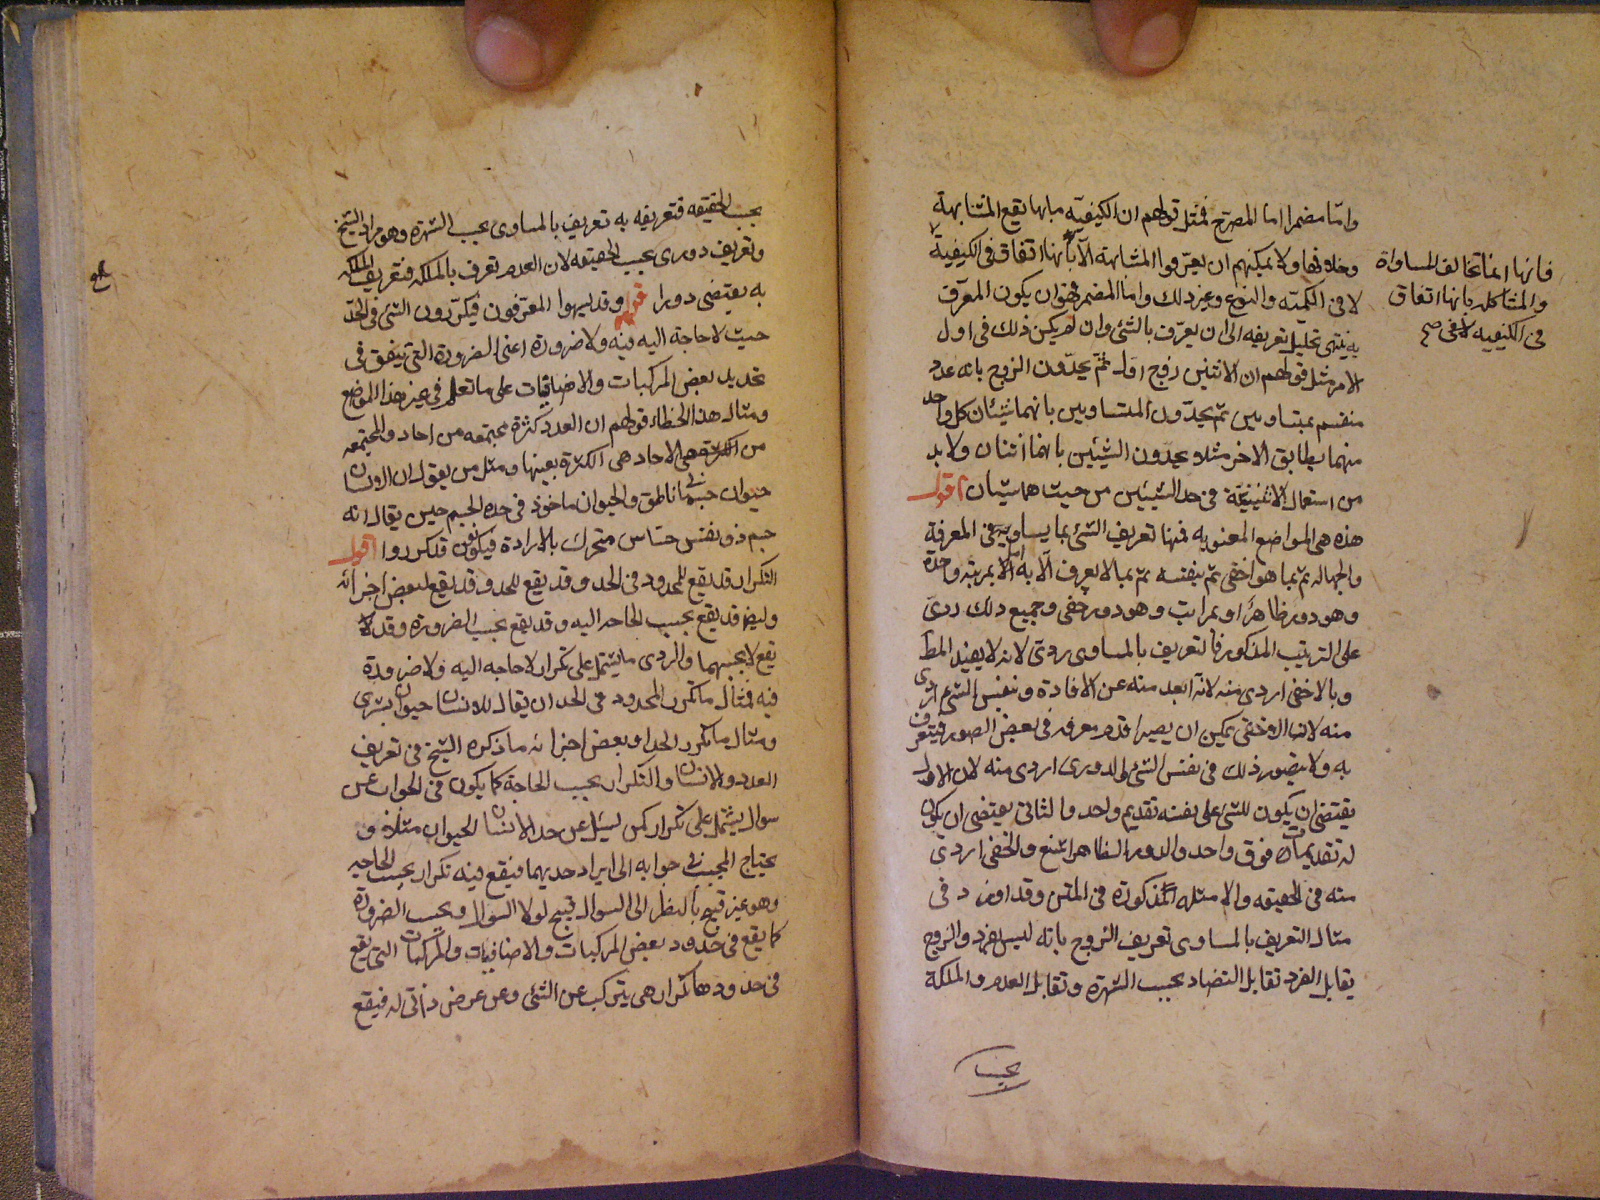 واما مضمرا اما المصرح فمثل قولهم ان الكيفية ما بها تقع المشابهة
وخلافها ولا يمكنهم ان يعرفوا المشابهة الا بانها اتفاق فى الكيفية
فانها انما تخالف المساواة
والمشاكلة بانها اتفاق
فى الكيفية لا فى صح
لا فى الكمية والنوع وغير ذلك واما المضمر فهو ان يكون المعرف
به ينتهى تحليل تعريفه الى ان يعرف بالشئ وان لم يكن ذلك فى اول
الامر مثل قولهم ان الاثنين زوج اول ثم يحدون الزوج بانه عدد
منقسم بمتساويين ثم يحدون المتساويين بانهما شيئان كل واحد
منهما يطابق الاخر مثلا ثم يحدون الشيئين بانهما اثنان ولا بد
من استعمال الاثنينية فى حد الشيئين من حيث هما شيئان اقول
هذه هى المواضع المعنوية فمنها تعريف الشئ بما يساويه فى المعرفة
والجهالة ثم بما هو اخفى ثم بنفسه ثم بما لا يعرف الا به اما بمرتبة واحدة
وهو دور ظاهر او بمراتب وهو دور خفى وجميع ذلك ردى
على الترتيب المذكور فالتعريف بالمساوى ردى لانه لا يفيد المط
وبالاخفى اردى منه لانه ابعد منه عن الافادة وبنفس الشئ اردى
منه لان الاخفى يمكن ان يصير اقدم معرفة فى بعض الصور فيتعرف
به ولا يتصور ذلك فى نفس الشئ والدورى اردى منه لان الاول
يقتضى ان يكون للشئ على نفسه تقديم واحد والثانى يقتضى ان يكون
له تقديمات فوق واحد والدور الظاهر اشنع والخفى اردى
منه فى الحقيقة والامثلة المذكورة فى المتن وقد اورد فى
مثال التعريف بالمساوى تعريف الزوج بانه ليس بفرد والزوج
يقابل الفرد تقابل التضاد بحسب الشهرة وتقابل العدم والملكة
بحسب
بحسب الحقيقة فتعريفه به تعريف بالمساوى بحسب الشهرة وهو مراد الشيخ
وتعريف دورى بحسب الحقيقة لان العدم تعرف بالملكة فتعريف الملكة
به يقتضى دورا قوله وقد يسهوا المعرفون فيكررون الشئ فى الحد
حيث لا حاجة اليه فيه ولا ضرورة اعنى الضرورة التى تتفق فى
تحديد بعض المركبات والاضافيات على ما تعلم فى غير هذا الموضع
ومثال هذا الخطاء قولهم ان العدد كثرة مجتمعة من احاد والمجتمعة
من الاحاد هى الكثرة بعينها ومثل من يقول ان الانسان
حيوان جسمانى ناطق والحيوان ماخوذ فى حده الجسم حين يقال انه
جسم ذو نفس حساس متحرك بالارادة فيكونون قد كرروا اقول
التكرار قد يقع للمحدود فى الحد وقد يقع للحد وقد يقع لبعض اجزائه
وايضا قد يقع بحسب الحاجة اليه وقد يقع بحسب الضرورة وقد لا
يقع لا بحسبهما والردى ما يشتمل على تكرار لا حاجة اليه ولا ضرورة
فيه فمثال ما تكرر المحدود فى الحد ان يقال للانسان حيوان بشرى
ومثال ما تكرر الحد او بعض اجزائه ما ذكره الشيخ فى تعريف
العدد والانسان والتكرار بحسب الحاجة كما يكون فى الجواب عن
سوال يشتمل على تكرار كمن يسئل عن حد الانسان الحيوان مثلا و
يحتاج المجيب فى جوابه الى ايراد حديهما فيقع فيه تكرار بحسب الحاجة
وهو غير قبيح بالنظر الى السوال قبيح لولا السوال وبحسب الضرورة
كما يقع فى حدود بعض المركبات والاضافيات والمركبات التى يقع
فى حدودها تكرار هى يتركب عن الشئ وعن عرض ذاتى له فيقع